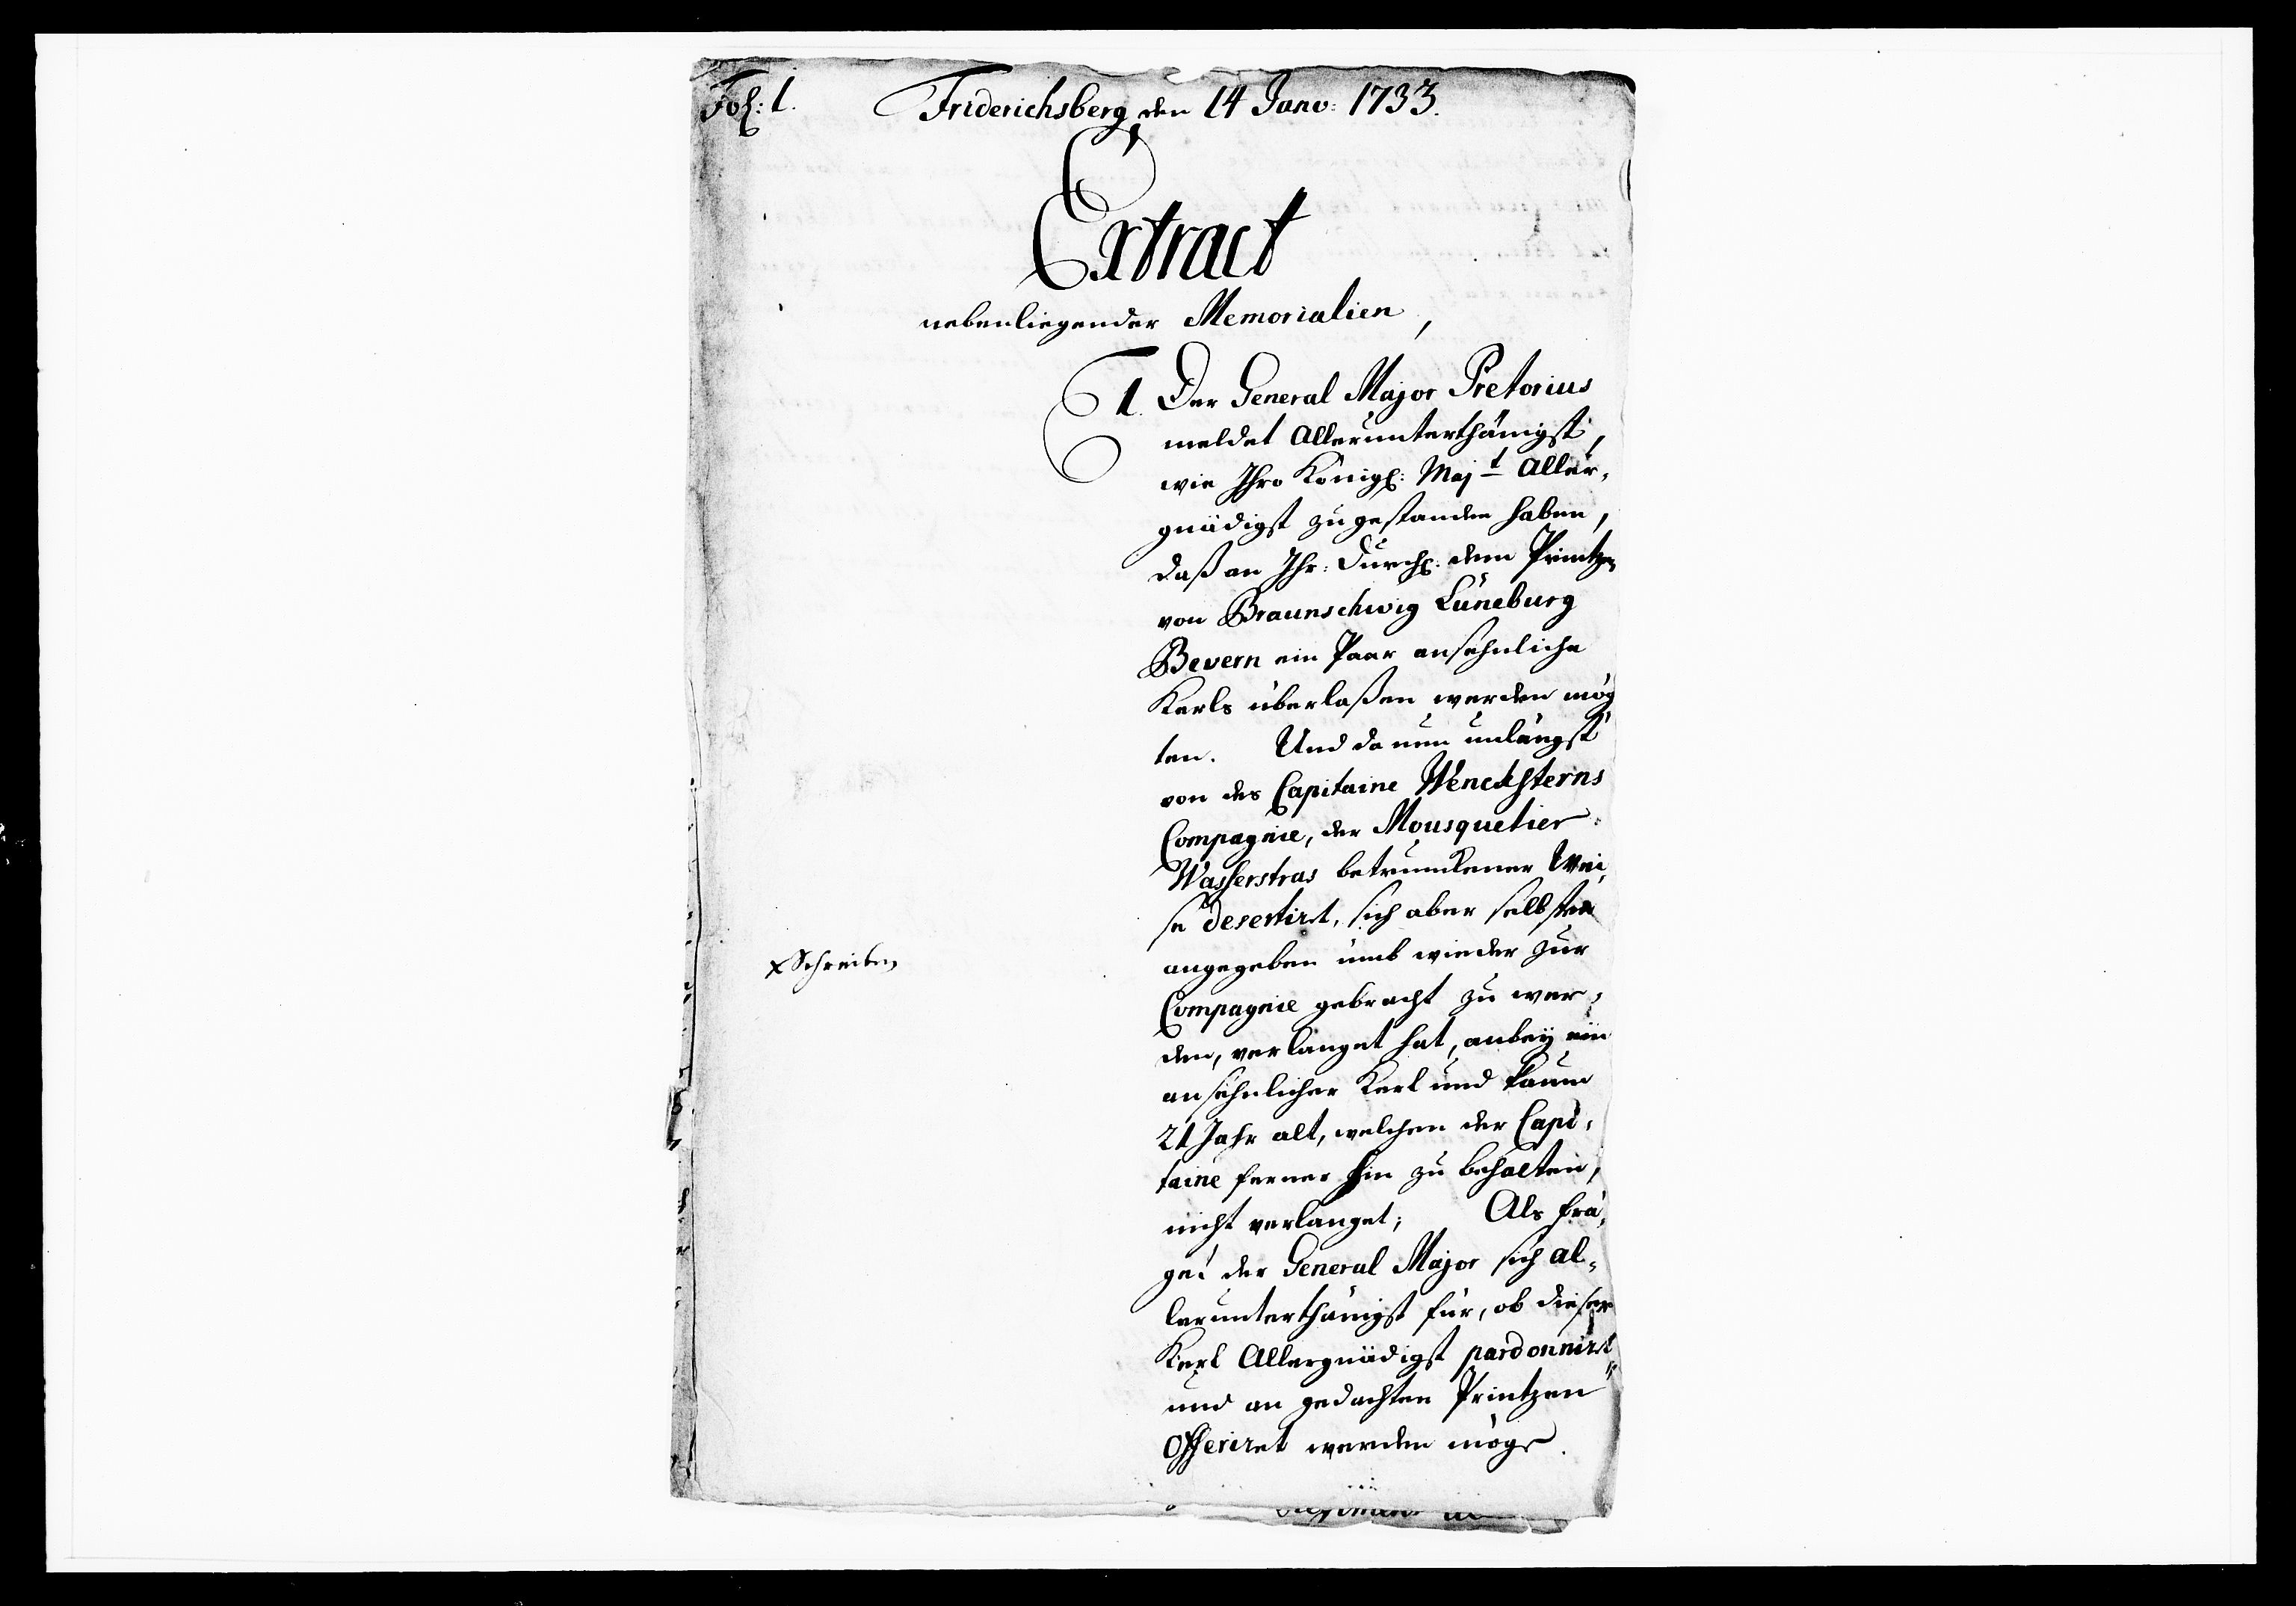 Fol: 1.
Friderichsberg den 14 Janv: 1733.
Extract
nebenliegender Memorialien,
1. Der General Major Pretorius
meldet Allerunterthänigst,
wie Ihro Königl: Majt Aller-
gnädigst zugestanden haben,
daß an Ihr: Durchl: dem Printzen
von Braunschwig Lüneburg
Bevern ein Paar ansehnliche
Kerls überlaßen werden mög
ten. Und da nun unlängst
von des Capitaine Wencksterns
Compagnie, der Mousquetier
Wasserstras betrunkener Wei-
se desertirt, sich aber selbsten
angegeben umb wieder zur
x Schreiben
Compagnie gebracht zu wer-
den, verlanget hat, anbey ein
ansehnlicher Kerl und kaum
21 Jahr alt, welchen der Capi-
taine ferner hin zu behalten,
nicht verlanget; Als frä-
get der General Major sich al-
lerunterthänigst für, ob dieser
Kerl Allergnädigst pardonnirt
und an gedachten Printzen
Offeriret werden möge.